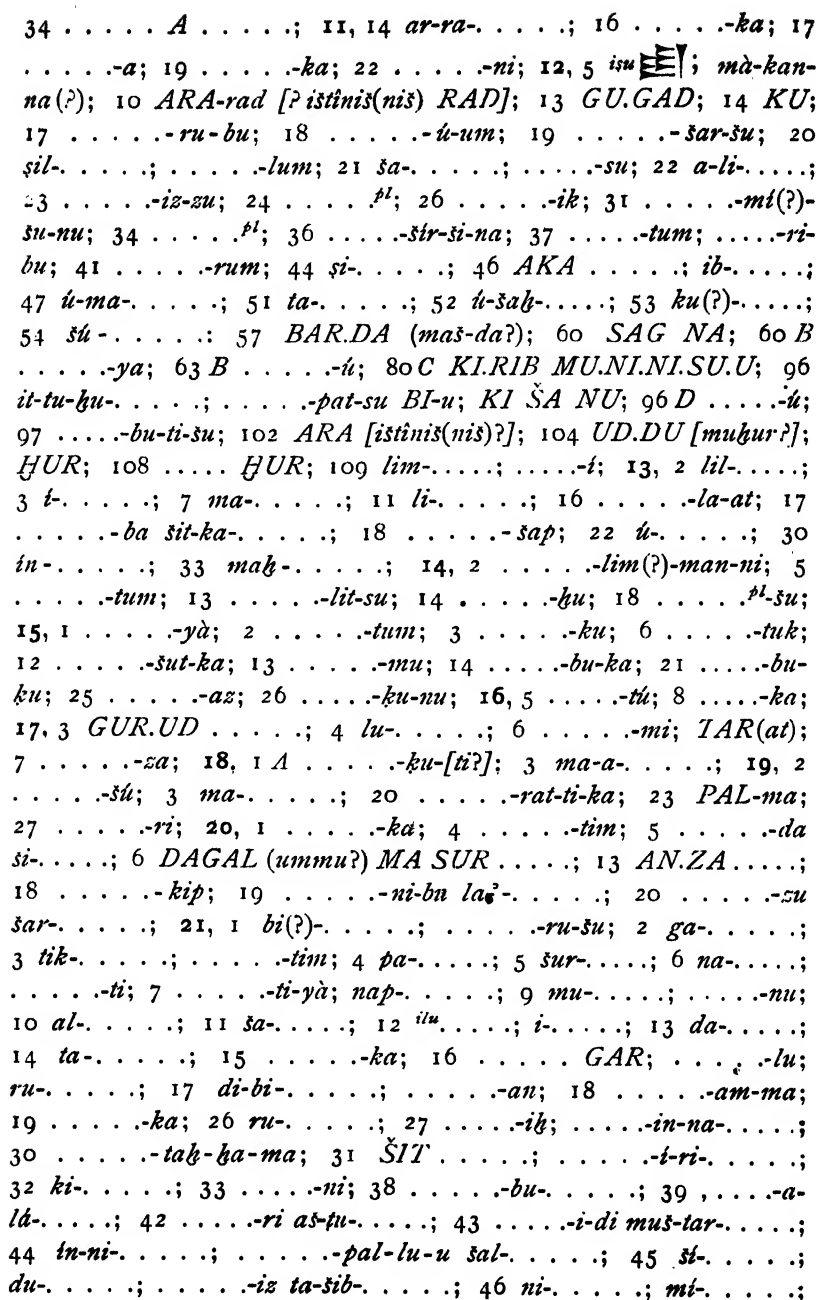 34 . . . . . A . . . . .; 11, 14 ar-ra-. . . . .; 16 . . . . .-ka; 17
. . . . .-a; 19 . . . . .-ka; 22 . . . . .-ni; 12, 5 iṣu; mà-kan-
na(?); 10 ARA-rad [? ištîniš(niš) RAD]; 13 GU.GAD; 14 KU;
17 . . . . .-ru-bu; 18 . . . . .-ú-um; 19 . . . . .-šar-šu; 20
ṣil-. . . . .; . . . . .-lum; 21 ša-. . . . .; . . . . .-su; 22 a-li-. . . . .;
23 . . . . .-iz-zu; 24 . . . . .pl; 26 . . . . .-ik; 31 . . . . .-mí(?)-
šu-nu; 34 . . . . .pl; 36 . . . . .-šír-ši-na; 37 . . . . .-tum; . . . . .-ri-
bu; 41 . . . . .-rum; 44 ṣi-. . . . .; 46 AKA . . . . .; ib-. . . . .;
47 ú-ma-. . . . .; 51 ta-. . . . .; 52 ú-šaḫ-. . . . .; 53 ku(?)-. . . . .;
54 šú-. . . . .: 57 BAR.DA (maš-da?); 60 SAG NA; 60 B
. . . . .-ya; 63 B . . . . .-ú; 80 C KI.RIB MU.NI.NI.SU.U; 96
it-tu-ḫu-. . . . .; . . . . .-pat-su BI-u; KI ŠA NU; 96 D . . . . .-ú;
97 . . . . .-bu-ti-šu; 102 ARA [ištîniš(niš)?]; 104 UD.DU [muḫur?];
ḪUR; 108 . . . . . ḪUR; 109 lim-. . . . .; . . . . .-í; 13, 2 lil-. . . . .;
3 í-. . . . .; 7 ma-. . . . .; 11 li-. . . . .; 16 . . . . .-la-at; 17
. . . . .-ba šit-ka-. . . . .; 18 . . . . .-šap; 22 ú-. . . . .; 30
ín-. . . . .; 33 maḫ-. . . . .; 14, 2 . . . . .-lim(?)-man-ni; 5
. . . . .-tum; 13 . . . . .-lit-su; 14 . . . . .-ḫu; 18 . . . . .pl-šu;
15, 1 . . . . .-yà; 2 . . . . .-tum; 3 . . . . .-ku; 6 . . . . .-tuk;
12 . . . . .-šut-ka; 13 . . . . .-mu; 14 . . . . .-bu-ka; 21 . . . . .-bu-
ḳu; 25 . . . . .-az; 26 . . . . .-ku-nu; 16, 5 . . . . .-tú; 8 . . . . .-ka;
17, 3 GUR.UD . . . . .; 4 lu-. . . . .; 6 . . . . .-mi; TAR(at);
7 . . . . .-za; 18, 1 A . . . . .-ḳu-[ti?]; 3 ma-a-. . . . .; 19, 2
. . . . .-šú; 3 ma-. . . . .; 20 . . . . .-rat-ti-ka; 23 PAL-ma;
27 . . . . .-ri; 20, 1 . . . . .-ka; 4 . . . . .-tim; 5 . . . . .-da
ši-. . . . .; 6 DAGAL (ummu?) MA SUR . . . . .; 13 AN.ZA . . . . .;
18 . . . . .-kip; 19 . . . . .-ni-bu . . . . .; 20 . . . . .-zu
šar-. . . . .; 21, 1 bi(?)-. . . . .; . . . . .-ru-šu; 2 ga-. . . . .;
3 tik-. . . . .; . . . . .-tim; 4 pa-. . . . .; 5 šur-. . . . .; 6 na-. . . . .;
. . . . .-ti; 7 . . . . .-ti-yà; nap-. . . . .; 9 mu-. . . . .; . . . . .-nu;
10 al-. . . . .; 11 ša-. . . . .; 12 ilu. . . . .; i-. . . . .; 13 da-. . . . .;
14 ta-. . . . .; 15 . . . . .-ka; 16 . . . . . GAR; . . . . .-lu;
ru-. . . . .; 17 di-bi-. . . . .; . . . . .-an; 18 . . . . .-am-ma;
19 . . . . .-ka; 26 ru-. . . . .; 27 . . . . .-iḫ; . . . . .-in-na-. . . . .;
30 . . . . .-taḫ-ḫa-ma; 31 ŠIT . . . . .; . . . . .-í-ri-. . . . .;
32 ki-. . . . .; 33 . . . . .-ni; 38 . . . . .-bu-. . . . .; 39 . . . . .-a-
lá-. . . . .; 42 . . . . .-ri aš-ṭu-. . . . .; 43 . . . . .-i-di muš-tar-. . . . .;
44 ín-ni-. . . . .; . . . . .-pal-lu-u šal-. . . . .; 45 ší-. . . . .;
du-. . . . .; . . . . .-iz ta-šib-. . . . .; 46 ni-. . . . .; mí-. . . . .;